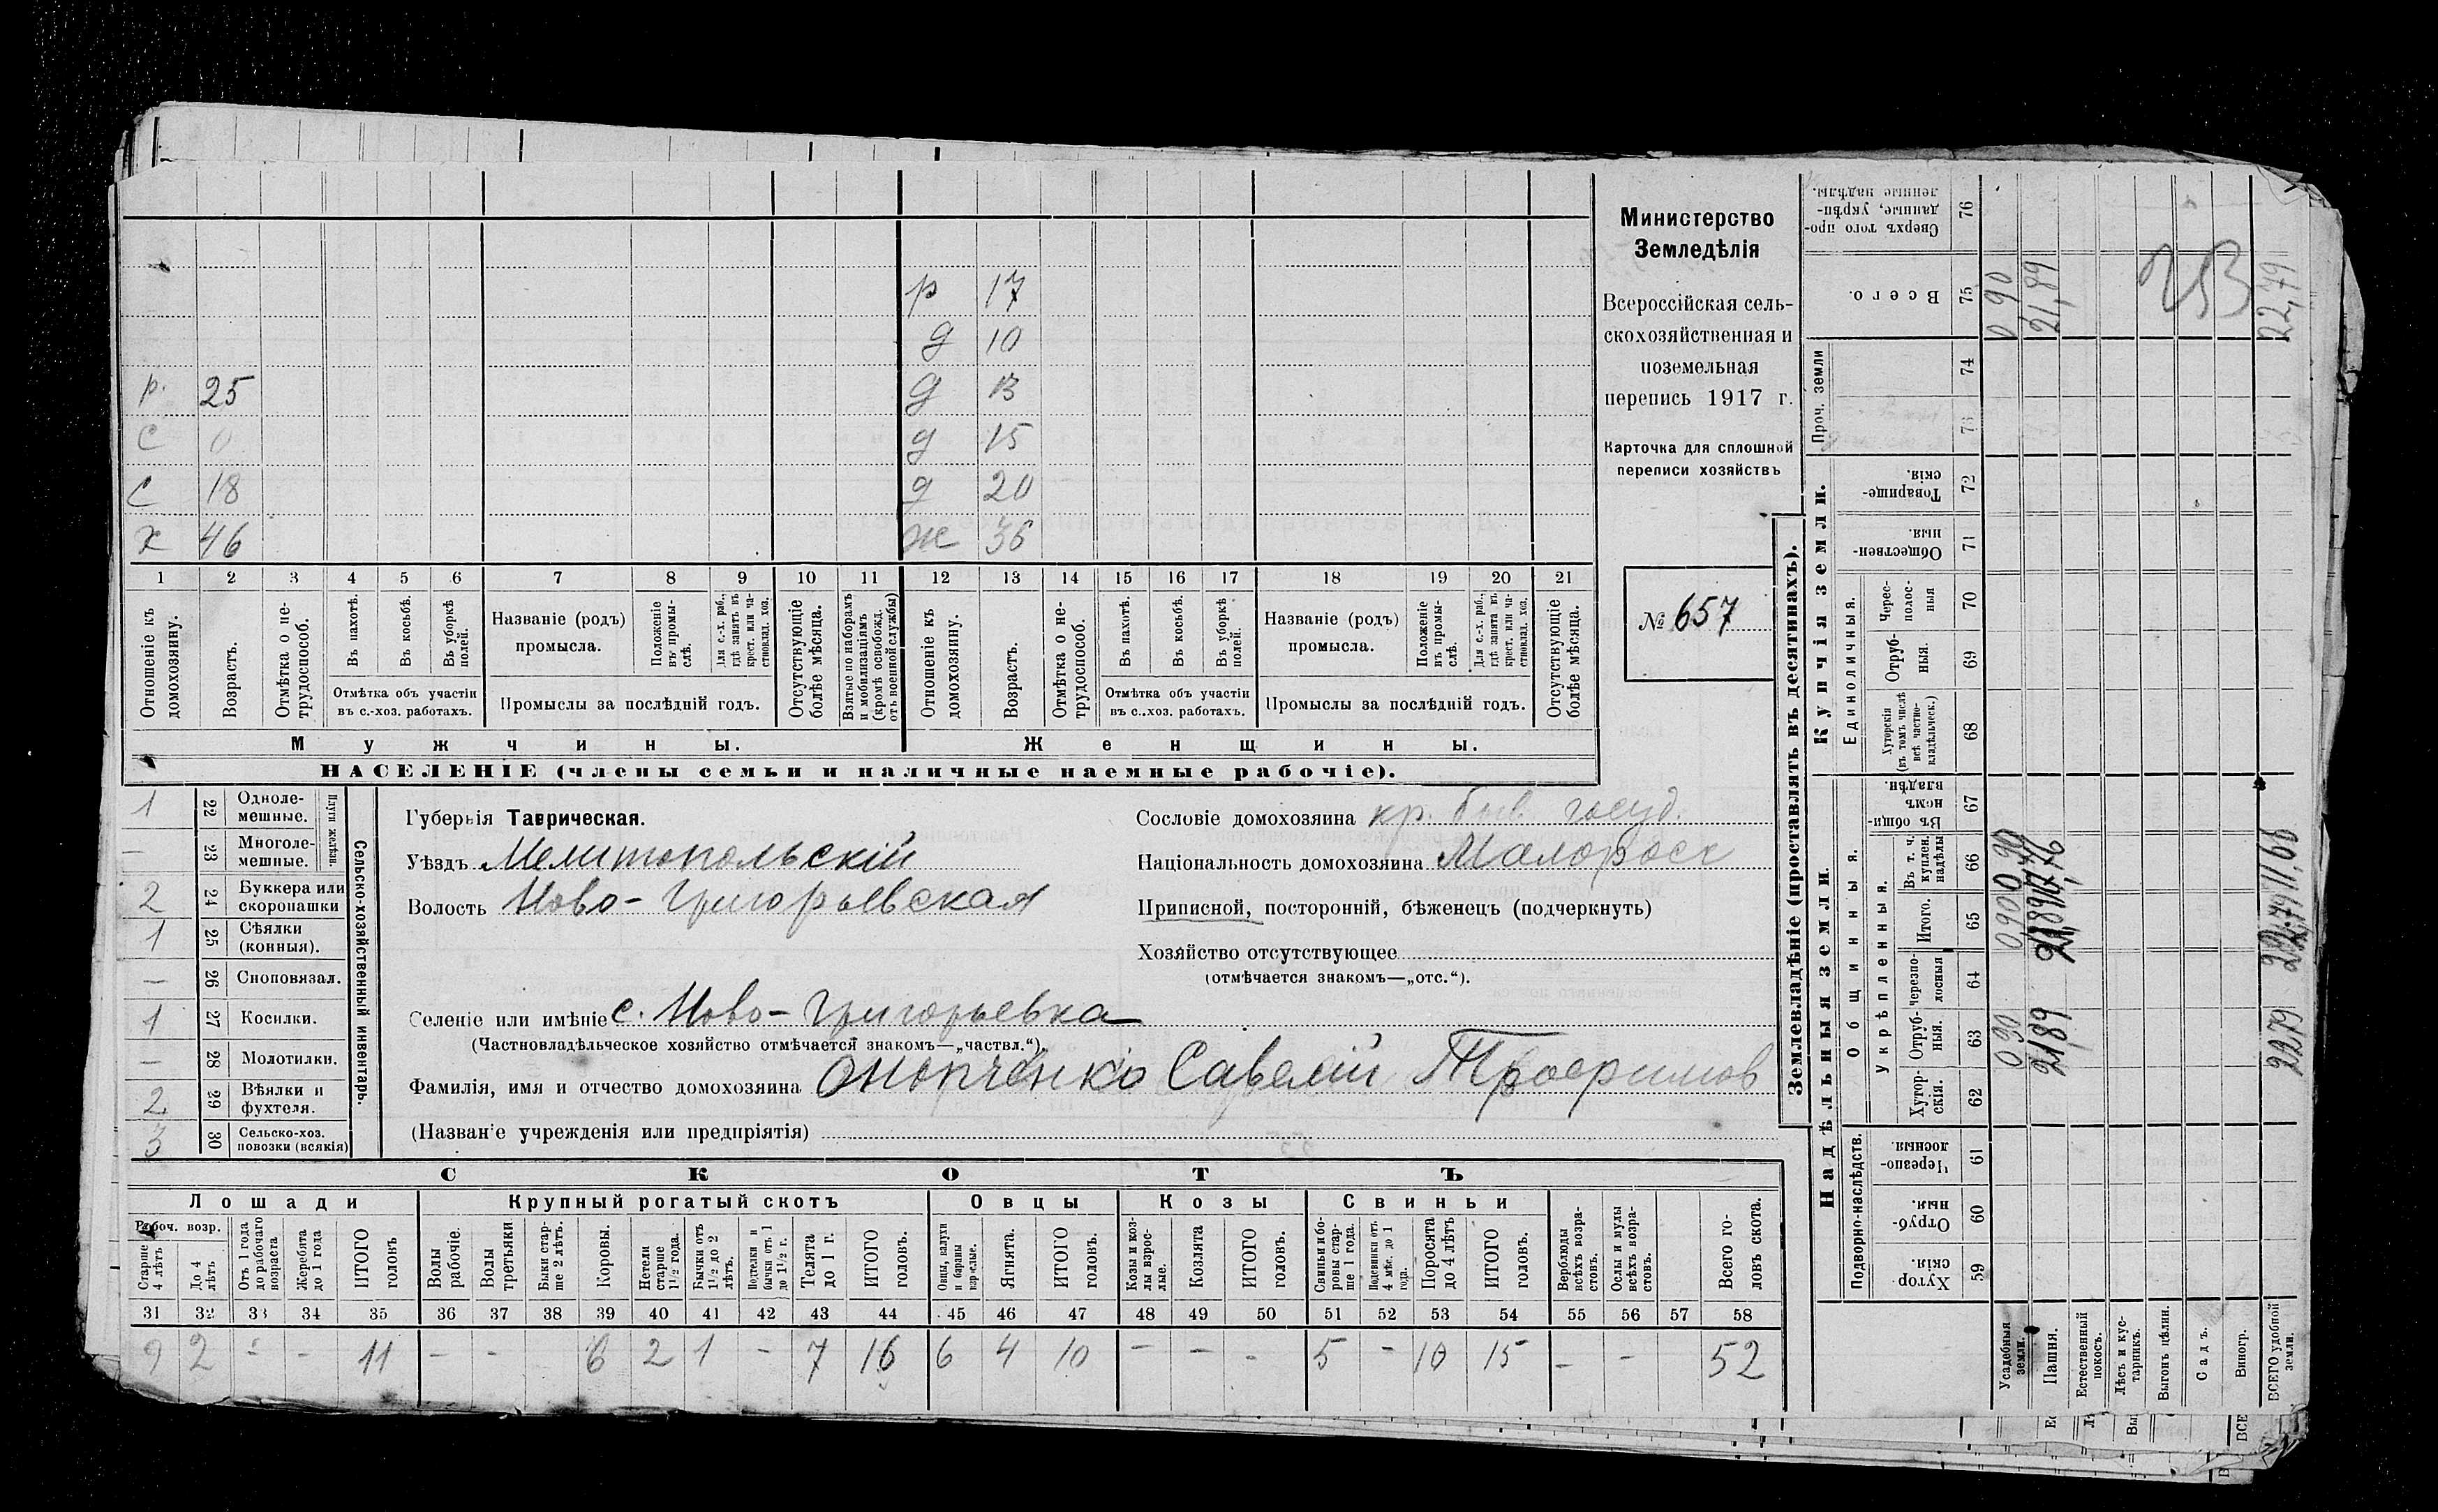 р 17
д 10
р. 25 д 13
с 0 д 15
с 18 д 20
х 46 ж 36
1 2 3 4 5 6 7 8 9 10 11 12 13 14 15 16 17 18 19 20 21
Отношеніе къ домохозяину.
Возрастъ.
Отмѣтка о нетрудоспособ.
Въ пахотѣ.
Въ косьбѣ.
Въ уборкѣ полей.
Отмѣтка объ участіи
въ с.-хоз. работахъ.
Названіе (родъ)
промысла.
Положеніе въ промыслѣ.
Для с.-х. раб., гдѣ занятъ въ крест. или частновлад. хоз.
Промыслы за послѣдній годъ.
Отсутствующіе болѣе мѣсяца.
Взятые по наборамъ и мобилизаціямъ (кромѣ освобожд. отъ военной службы)
Отношеніе къ домохозяину.
Возрастъ.
Отмѣтка о нетрудоспособ.
Въ пахотѣ.
Въ косьбѣ.
Въ уборкѣ полей.
Отмѣтка объ участіи
въ с..хоз. работахъ.
Названіе (родъ)
промысла.
Положеніе въ промыслѣ.
Для с.-х. раб., гдѣ занята въ крест. или частновлад. хоз.
Промыслы за послѣдній годъ.
Отсутствующіе болѣе мѣсяца.
Мужчины. Женщины.
НАСЕЛЕНІЕ (члены семьи и наличные наемные рабочіе).
Министерство
Земледѣлія
Всероссійская сель-
скохозяйственная и
поземельная
перепись 1917 г.
Карточка для сплошной
переписи хозяйствъ
№ 657
Сельско-хозяйственный инвентарь.
Плуги желѣзн.
1 22 Одноле-
мешные.
— 23 Многоле-
мешные.
2 24 Буккера или
скоропашки
1 25 Сѣялки
(конныя).
— 26 Сноповязал.
1 27 Косилки.
— 28 Молотилки.
2 29 Вѣялки и
фухтеля.
3 30 Сельско-хоз.
повозки (всякія)
Губернія Таврическая.
Уѣздъ Мелитопольскій
Волость Ново-Григорьевская
Селеніе или имѣніе с. Ново-Григорьевка
(Частновладѣльческое хозяйство отмѣчается знакомъ—„частвл.“).
Фамилія, имя и отчество домохозяина Онопченко Савелій Трофимов
(Названіе учрежденія или предпріятія)
Сословіе домохозяина кр. быв. госуд.
Національность домохозяина Малоросс
Приписной, посторонній, бѣженецъ (подчеркнуть)
Хозяйство отсутствующее
(отмѣчается знакомъ—„отс.“).
СКОТЪ
Лошади Крупный рогатый скотъ Овцы Козы Свиньи
Рабоч. возр.
Старше 4 лѣтъ
До 4 лѣтъ
Отъ 1 года до рабочаго возраста
Жеребята до 1 года
ИТОГО головъ
Волы рабочіе.
Волы третьяки
Быки старше 2 лѣтъ.
Коровы.
Нетели старше 1½ года.
Бычки отъ 1½ до 2 лѣтъ.
Подтелки и бычки отъ 1 до 1½ г.
Телята до 1 г.
ИТОГО головъ.
Овцы, валухи и бараны взрослые.
Ягнята.
ИТОГО головъ.
Козы и козлы взрослые.
Козлята
ИТОГО головъ.
Свиньи и боровы старше 1 года.
Подсвинки отъ 4 мѣс. до 1 года.
Поросята до 4 лѣтъ
ИТОГО головъ.
Верблюды всѣхъ возрастовъ.
Ослы и мулы всѣхъ возрастовъ.
Всего головъ скота.
31 32 33 34 35 36 37 38 39 40 41 42 43 44 45 46 47 48 49 50 51 52 53 54 55 56 57 58
9 2 - - 11 - - 6 2 1 - 7 16 6 4 10 - - - 5 - 10 15 - - 52
Землевладѣніе (проставлять въ десятинахъ).
Надѣльныя земли. Купчія земли.
Подворно-наслѣдств.
Общинныя.
Укрѣпленныя.
Единоличныя.
Проч. земли
Хуторскія. 59
Отрубныя. 60
Черезполосныя 61
Хуторскія. 62
Отрубныя. 63
Черезполосныя 64
Итого. 65
Въ т. ч. куплен. надѣлы 66
Въ общинномъ владѣн. 67
Хуторскія (въ томъ числѣ всѣ частновладѣльческ.) 68
Отрубныя. 69
Черезполосныя 70
Общественныя. 71
Товарищескія. 72
73
74
Всего. 75
Сверхъ того проданные, укрѣпленные надѣлы. 76
Усадебныя земли. 0 90 0 90 0 90 0 90
Пашня. 21 89 21,89 21,89
Естественный покосъ.
Лѣсъ и кустарникъ.
Выгонъ цѣлин.
Садъ.
Виногр.
ВСЕГО удобной земли. 22 79 22,79 11,68 22,79